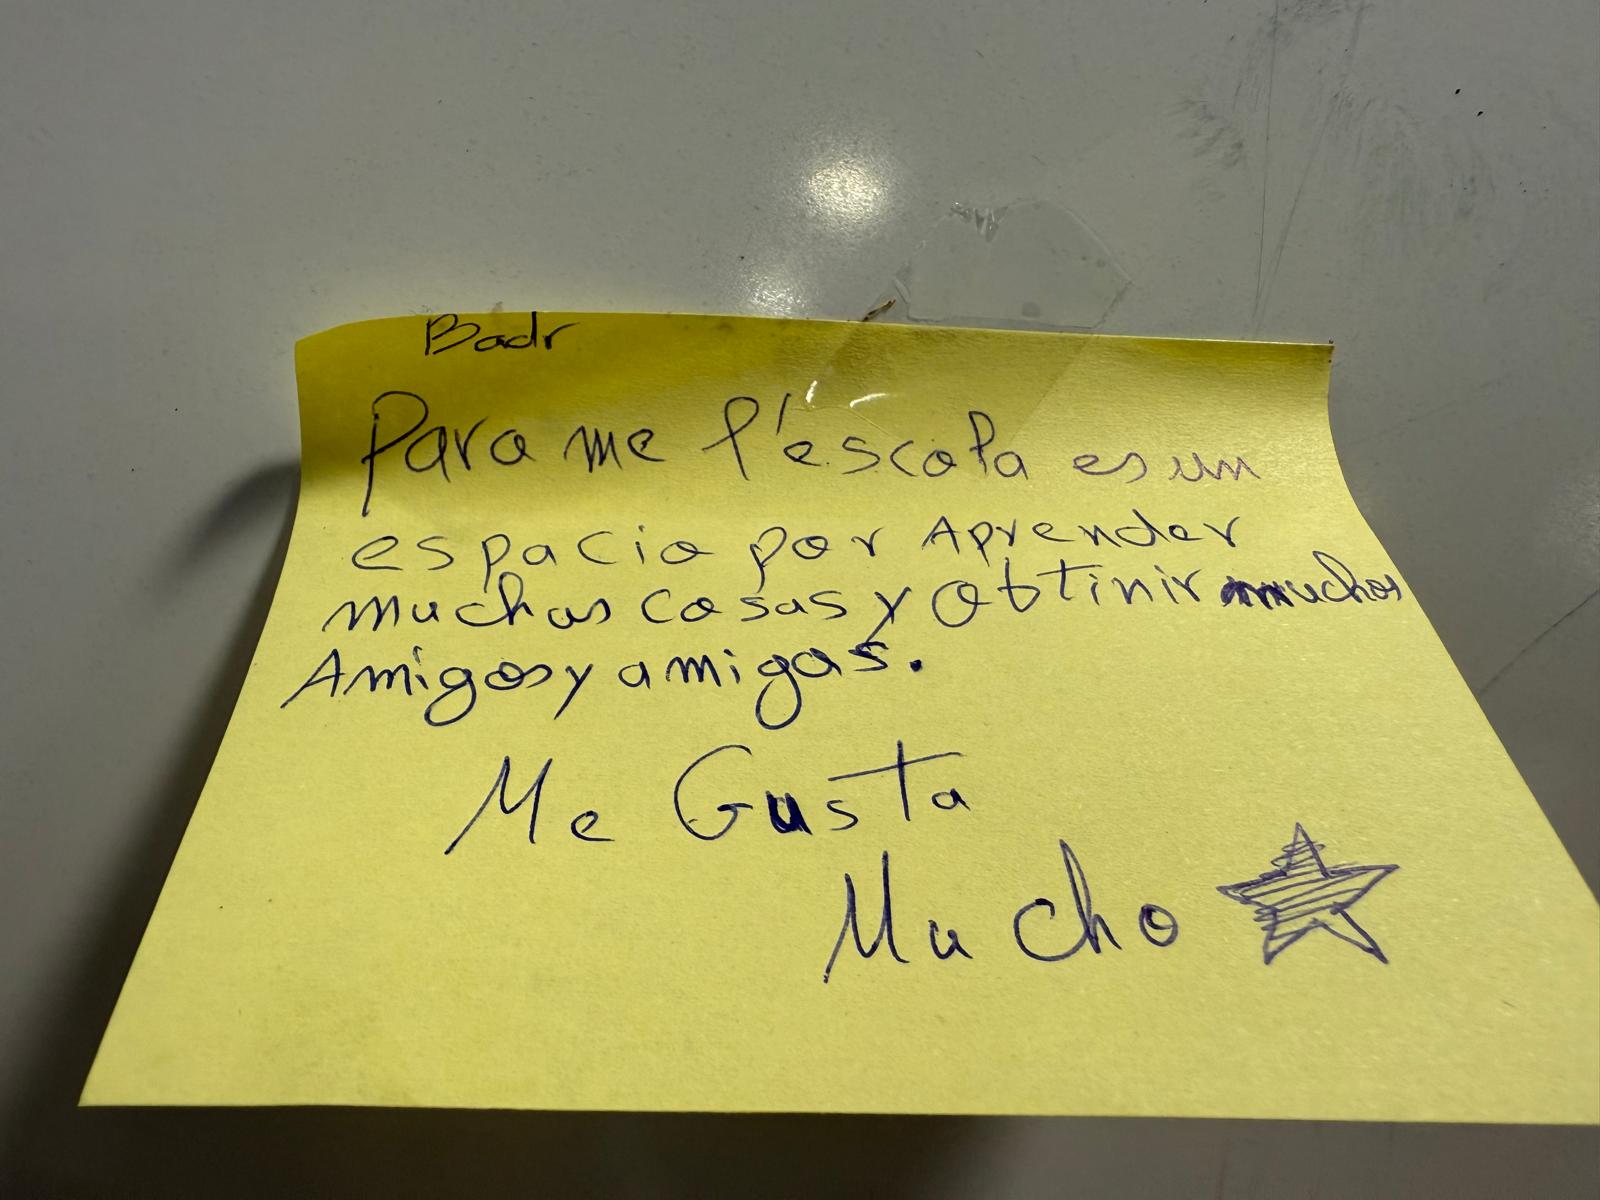 Badr
Para me l'escola es un
espacio por Aprender
muchas cosas y obtinir muchos
Amigos y amigas.
Me Gusta
Mucho